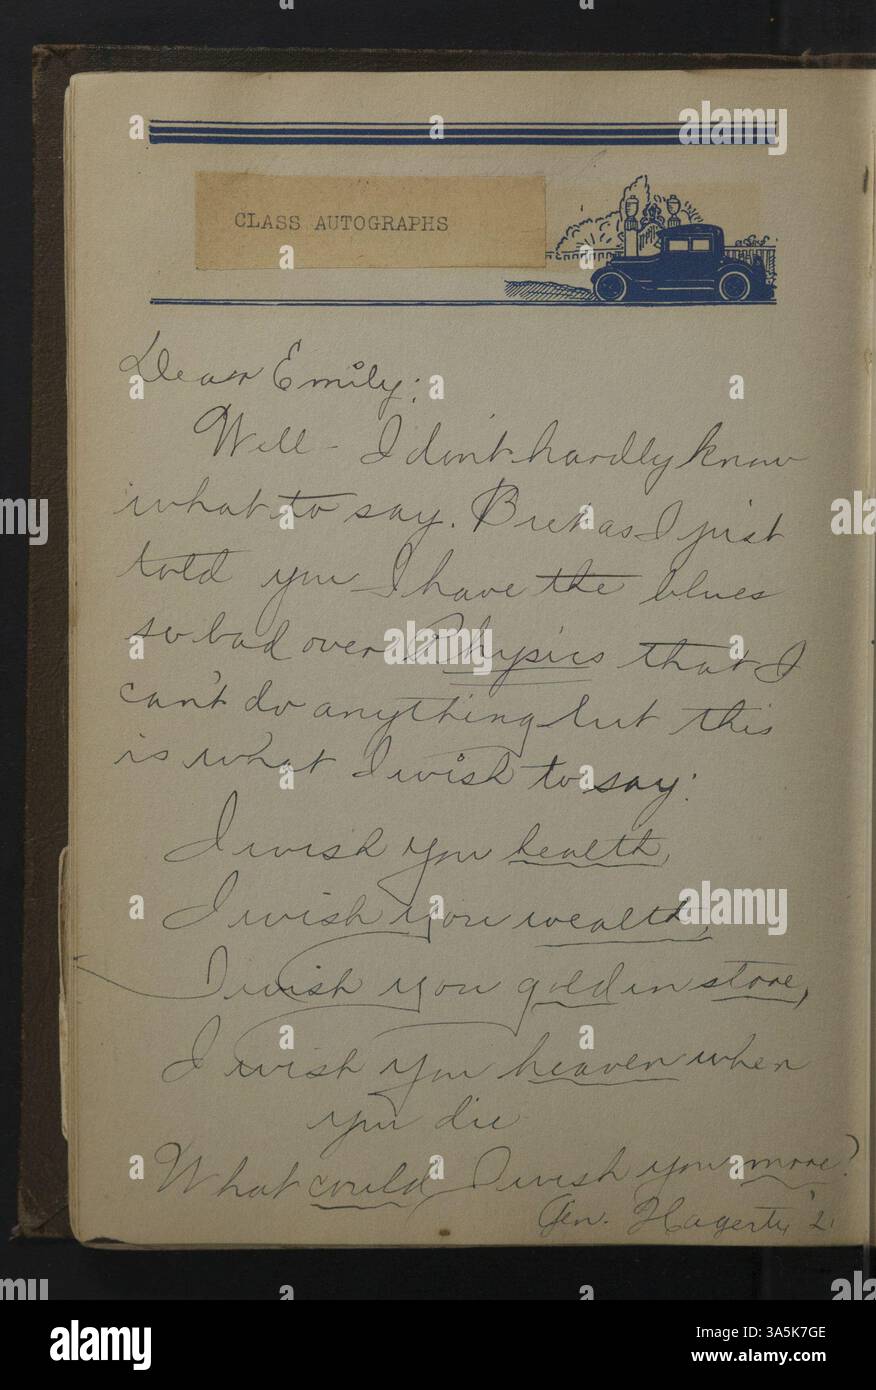 CLASS AUTOGRAPHS
Dear Emily:
Well - I don't hardly know
what to say. But as I just
told you I have the blues
so bad over Physics that I
can't do anything but this
is what I wish to say:
I wish you health,
I wish you wealth,
I wish you gold in store,
I wish you heaven when
you die
What could I wish you more?
Gen. Hagerty '2
alamy
Image ID: 3A5K7GE
www.alamy.com